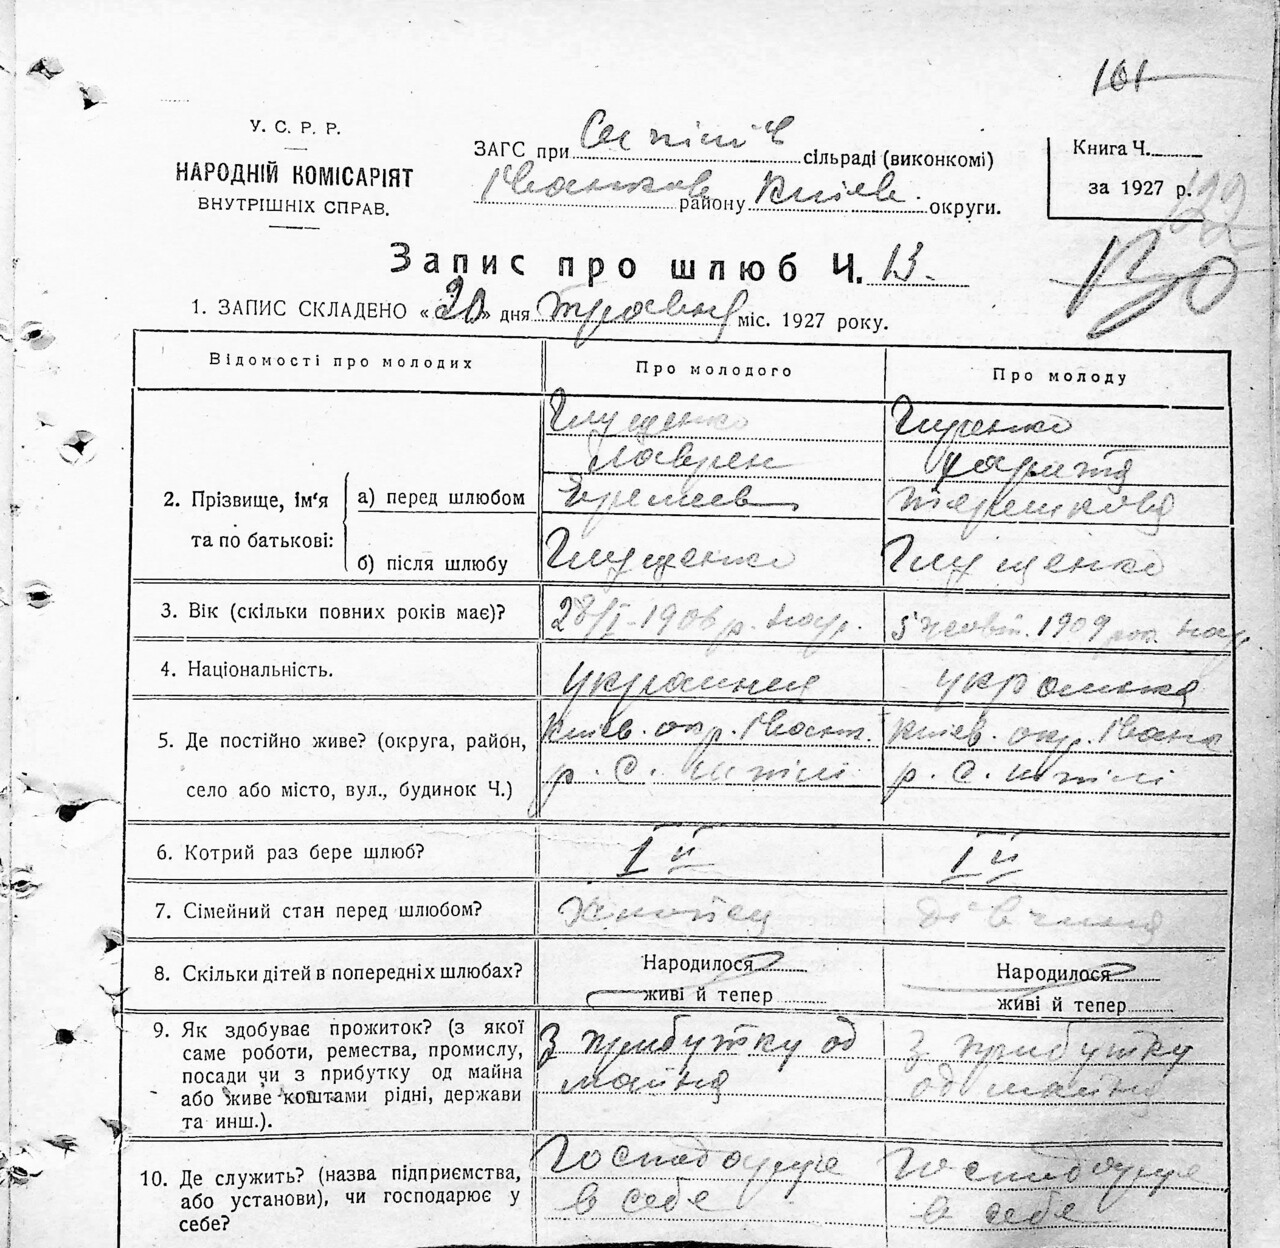 101
У. С. Р. Р.
НАРОДНІЙ КОМІСАРІЯТ
ВНУТРІШНІХ СПРАВ.
ЗАГС при сільраді (виконкомі)
Іванков району Київ. округи.
Книга Ч.
за 1927 р.
122
Запис про шлюб Ч. 13.
1. ЗАПИС СКЛАДЕНО «20» дня травня міс. 1927 року.
Відомості про молодих
Про молодого
Про молоду
2. Прізвище, ім‘я та по батькові:
а) перед шлюбом
Глущенко
Лаврен
Еремеев
Гиренко
Харитя
б) після шлюбу
Глущенко
Глущенко
3. Вік (скільки повних років має)?
28/I-1906 р. нар.
5 жовт. 1909 нар.
4. Національність.
украинец
украінка
5. Де постійно живе? (округа, район,
село або місто, вул., будинок Ч.)
Київ. окр. Іванк.
р. с.
Київ. окр. Іванк
р. с.
6. Котрий раз бере шлюб?
І й
І й
7. Сімейний стан перед шлюбом?
Хлопец
дівчина
8. Скільки дітей в попередніх шлюбах?
Народилося
живі й тепер
Народилося
живі й тепер
9. Як здобуває прожиток? (з якої
саме роботи, ремества, промислу,
посади чи з прибутку од майна
або живе коштами рідні, держави
та инш.).
З прибутку од
майна
З прибутку
од майна
10. Де служить? (назва підприємства,
або установи), чи господарює у
себе?
Господарує
в себе
Господарує
в себе